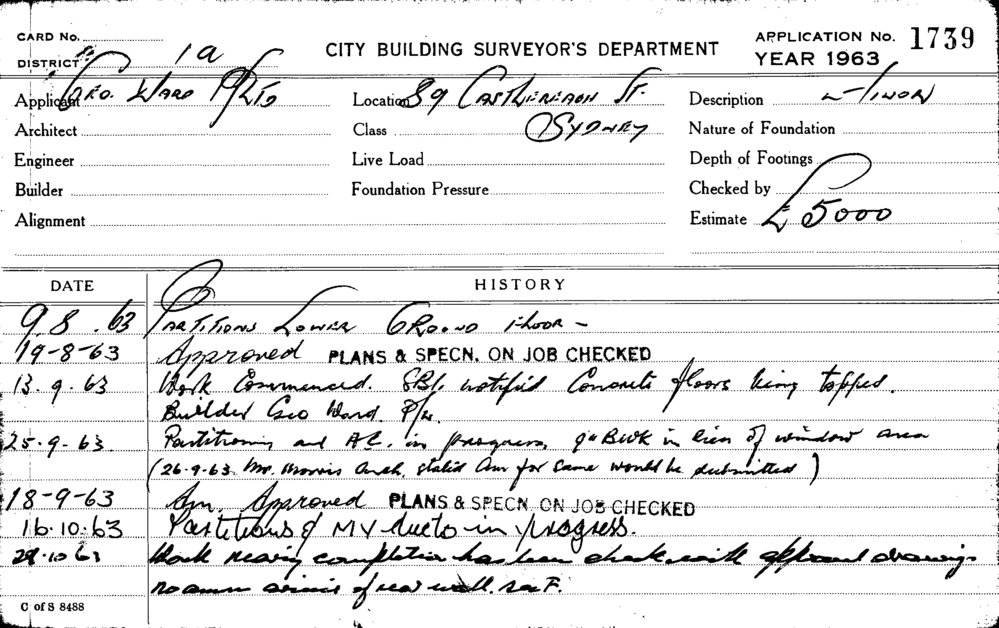 CARD No.
CITY BUILDING SURVEYOR'S DEPARTMENT
APPLICATION No. 1739
DISTRICT 1a
YEAR 1963
Applicant Geo. Ward P/Ltd
Location 89 Castlereagh St.
Description
Architect
Class Sydney
Nature of Foundation
Engineer
Live Load
Depth of Footings
Builder
Foundation Pressure
Checked by
Alignment
Estimate £5000
DATE
HISTORY
9.8.63 Partitions Lower Ground Floor -
19-8-63 Approved PLANS & SPECN. ON JOB CHECKED
13.9.63 Work Commenced. notified Concrete floors being topped.
Builder Geo Ward P/L.
25.9.63 Partitioning and A.C. in progress, 9" BWK in lieu of window area
(26.9.63. Mr. Morris Arch. stated Am for same would be submitted)
18-9-63 Am. Approved PLANS & SPECN. ON JOB CHECKED
16.10.63 Partitions & MV ducts in progress.
10 63 Work nearing completion has been check with approved drawings
no of rear wall.
C of S 8488